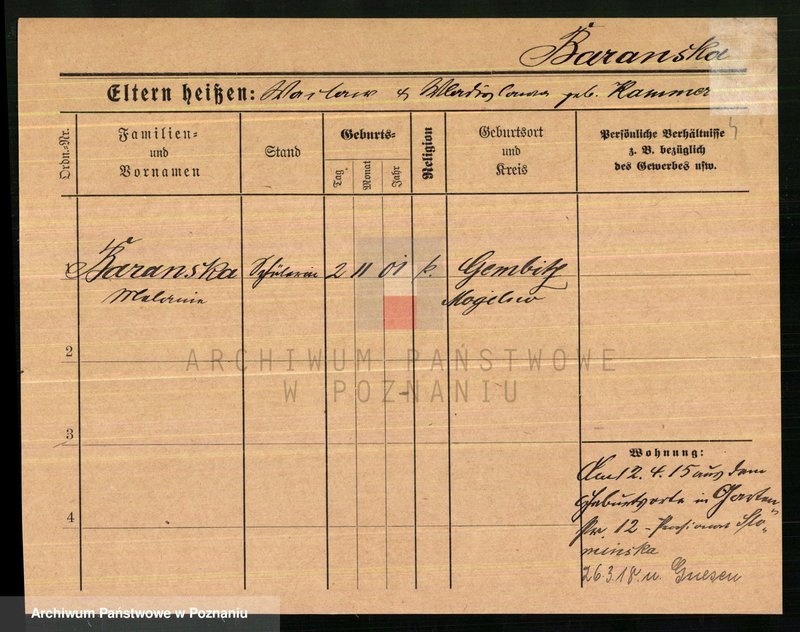 Baranska
Eltern heißen: Waclaw & Wladislawa geb. Kammer
4
Ordn.-Nr.
Familien-
und
Vornamen
Stand
Geburts-
Tag
Monat
Jahr
Religion
Geburtsort
und
Kreis
Persönliche Verhältnisse
z. B. bezüglich
des Gewerbes usw.
1 Baranska Schülerin 2 11 01 k. Gembitz
Melanie Mogilno
2
ARCHIWUM PAŃSTWOWE
W POZNANIU
3
Wohnung:
Am 12.4.15 aus dem
Geburtsorte in Garten-
str. 12 - Pensionat Slo-
minska
26.3.18. n. Gnesen
4
Archiwum Państwowe w Poznaniu